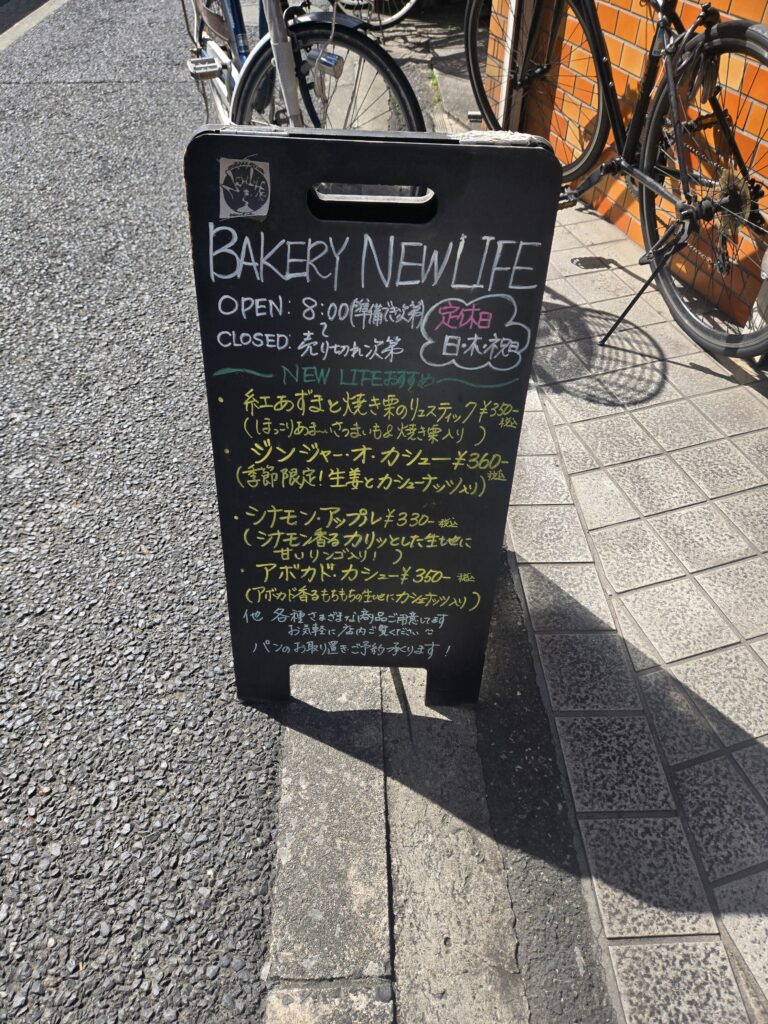 NEW LIFE
BAKERY NEW LIFE
OPEN: 8:00(準備でき次第)
〜
CLOSED: 売り切れ次第
定休日
日・木・祝日
NEW LIFEおすすめ
・紅あずまと焼き栗のリュスティック¥350- 税込
(ほっこりあま〜いさつまいも&焼き栗入り)
・ジンジャー・オ・カシュー¥360- 税込
(季節限定!生姜とカシューナッツ入り)
・シナモン・アップル¥330- 税込
(シナモン香るカリッとした生地に
甘いリンゴ入り!)
・アボカド・カシュー¥360- 税込
(アボカド香るもちもちの生地にカシューナッツ入り)
他 各種さまざまな商品ご用意してます
お気軽に店内ご覧ください
パンのお取り置きご予約承ります!